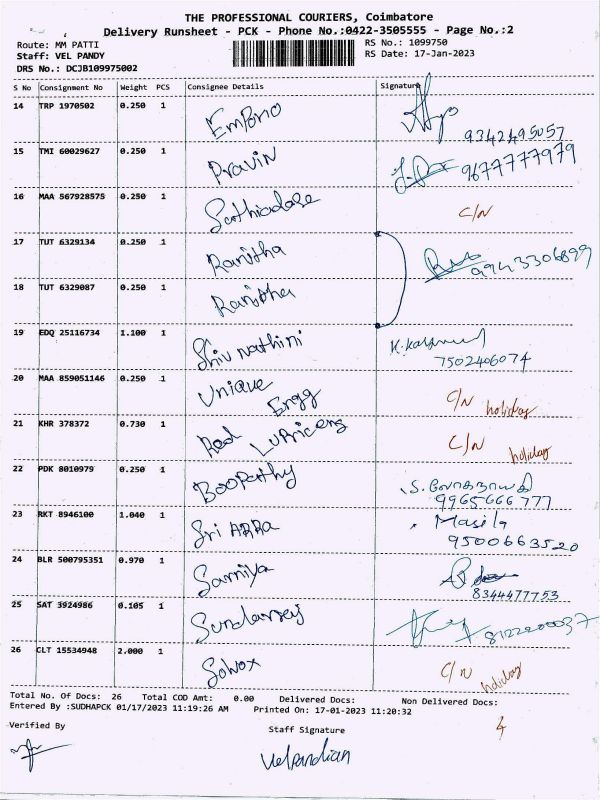 THE PROFESSIONAL COURIERS, Coimbatore
Delivery Runsheet - PCK - Phone No.:0422-3505555 - Page No.:2
Route: MM PATTI RS No.: 1099750
Staff: VEL PANDY RS Date: 17-Jan-2023
DRS No.: DCJB109975002
S No Consignment No Weight PCS Consignee Details Signature
14 TRP 1970502 0.250 1 Emporio
9342495057
15 TMI 60029627 0.250 1 Pravin 9677777979
16 MAA 567928575 0.250 1 C/N
17 TUT 6329134 0.250 1 Ranitha
9943306899
18 TUT 6329087 0.250 1 Ranitha
19 EDQ 25116734 1.100 1 Shivnathini
7502406074
20 MAA 859051146 0.250 1 Unique Engg C/N holiday
21 KHR 378372 0.730 1 C/N holiday
22 PDK 8010979 0.250 1 Boopathy
9965666777
23 RKT 8946100 1.040 1 Sri ARRA Masila
9500663520
24 BLR 500795351 0.970 1 Samiya
8344477753
25 SAT 3924986 0.105 1 8122200037
26 CLT 15534948 2.000 1 Solvox C/N holiday
Total No. Of Docs: 26 Total COD Amt: 0.00 Delivered Docs: Non Delivered Docs:
Entered By :SUDHAPCK 01/17/2023 11:19:26 AM Printed On: 17-01-2023 11:20:32
4
Verified By Staff Signature
Velpandian